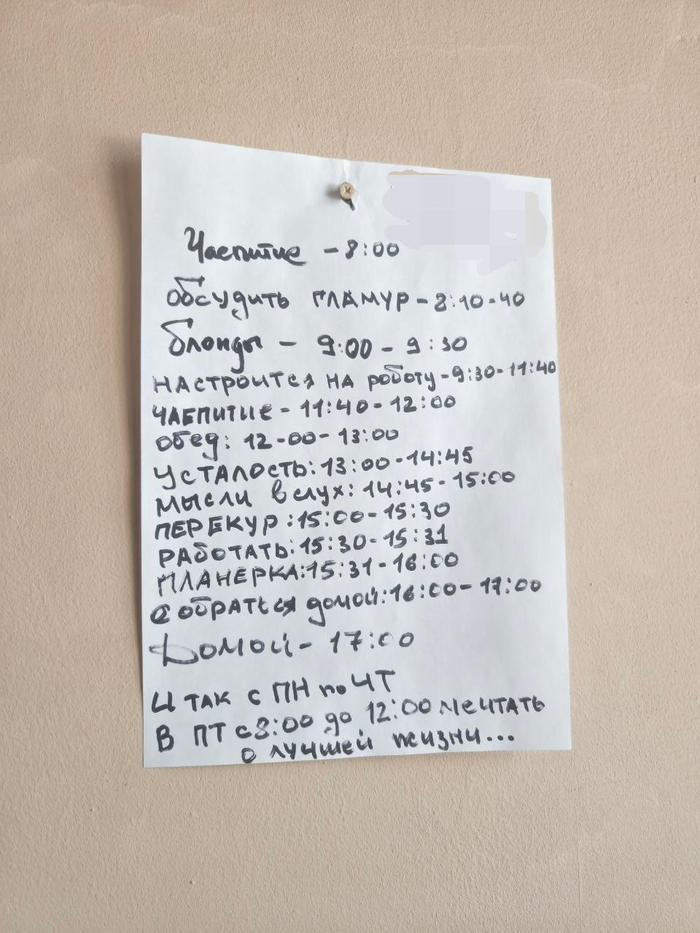 Чаепитие - 8:00
обсудить ГЛАМУР - 8:10-40
блонды - 9:00 - 9:30
НАСТРОИТСЯ НА роботу - 9:30-11:40
ЧАЕПИТИЕ - 11:40-12:00
обед: 12-00-13:00
УСТАЛОСТЬ: 13:00-14:45
МЫСЛИ вслух: 14:45-15:00
ПЕРЕКУР: 15:00-15:30
РАБОТАТЬ: 15:30-15:31
ПЛАНЕРКА: 15:31-16:00
СОБРАТЬСЯ домой: 16:00-17:00
Домой - 17:00
И ТАК с ПН по ЧТ
В ПТ с 8:00 до 12:00 мечтать
о лучшей жизни...